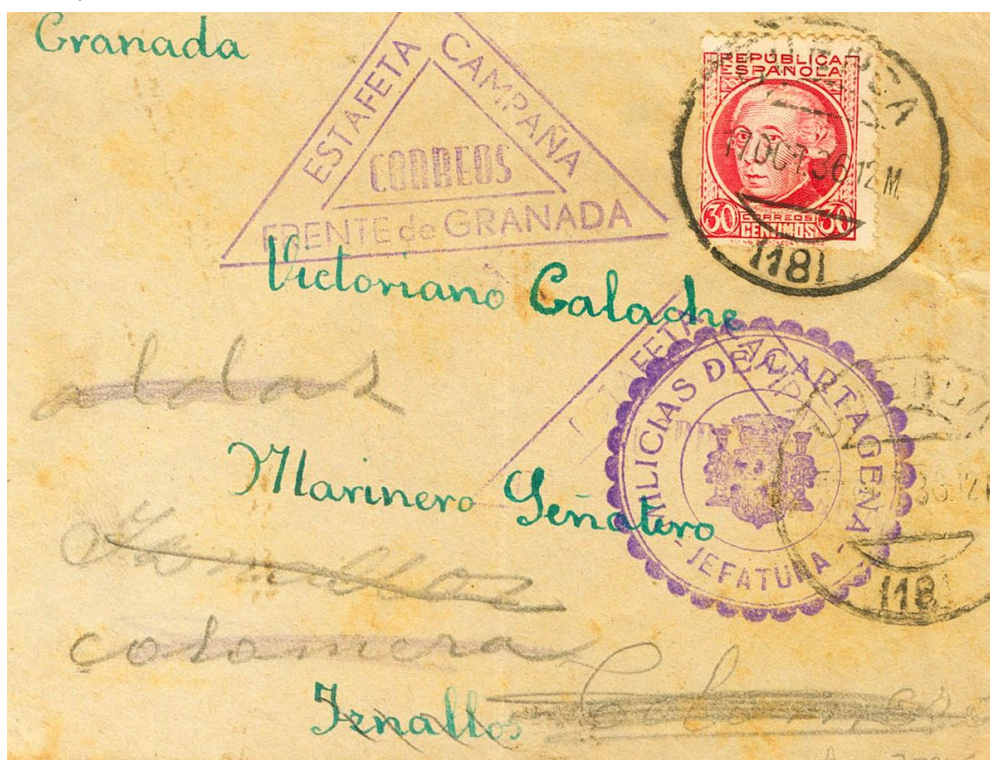 Granada
ESTAFETA CAMPAÑA
CORREOS
FRENTE de GRANADA
REPUBLICA
ESPAÑOLA
CORREOS
30 CENTIMOS 30
OCT.36.12M.
1181
Victoriano Calache
ESTAFETA
MILICIAS DE CARTAGENA
- JEFATURA -
aldas
36.12
118
Marinero Señatero
colomera
Iznallos